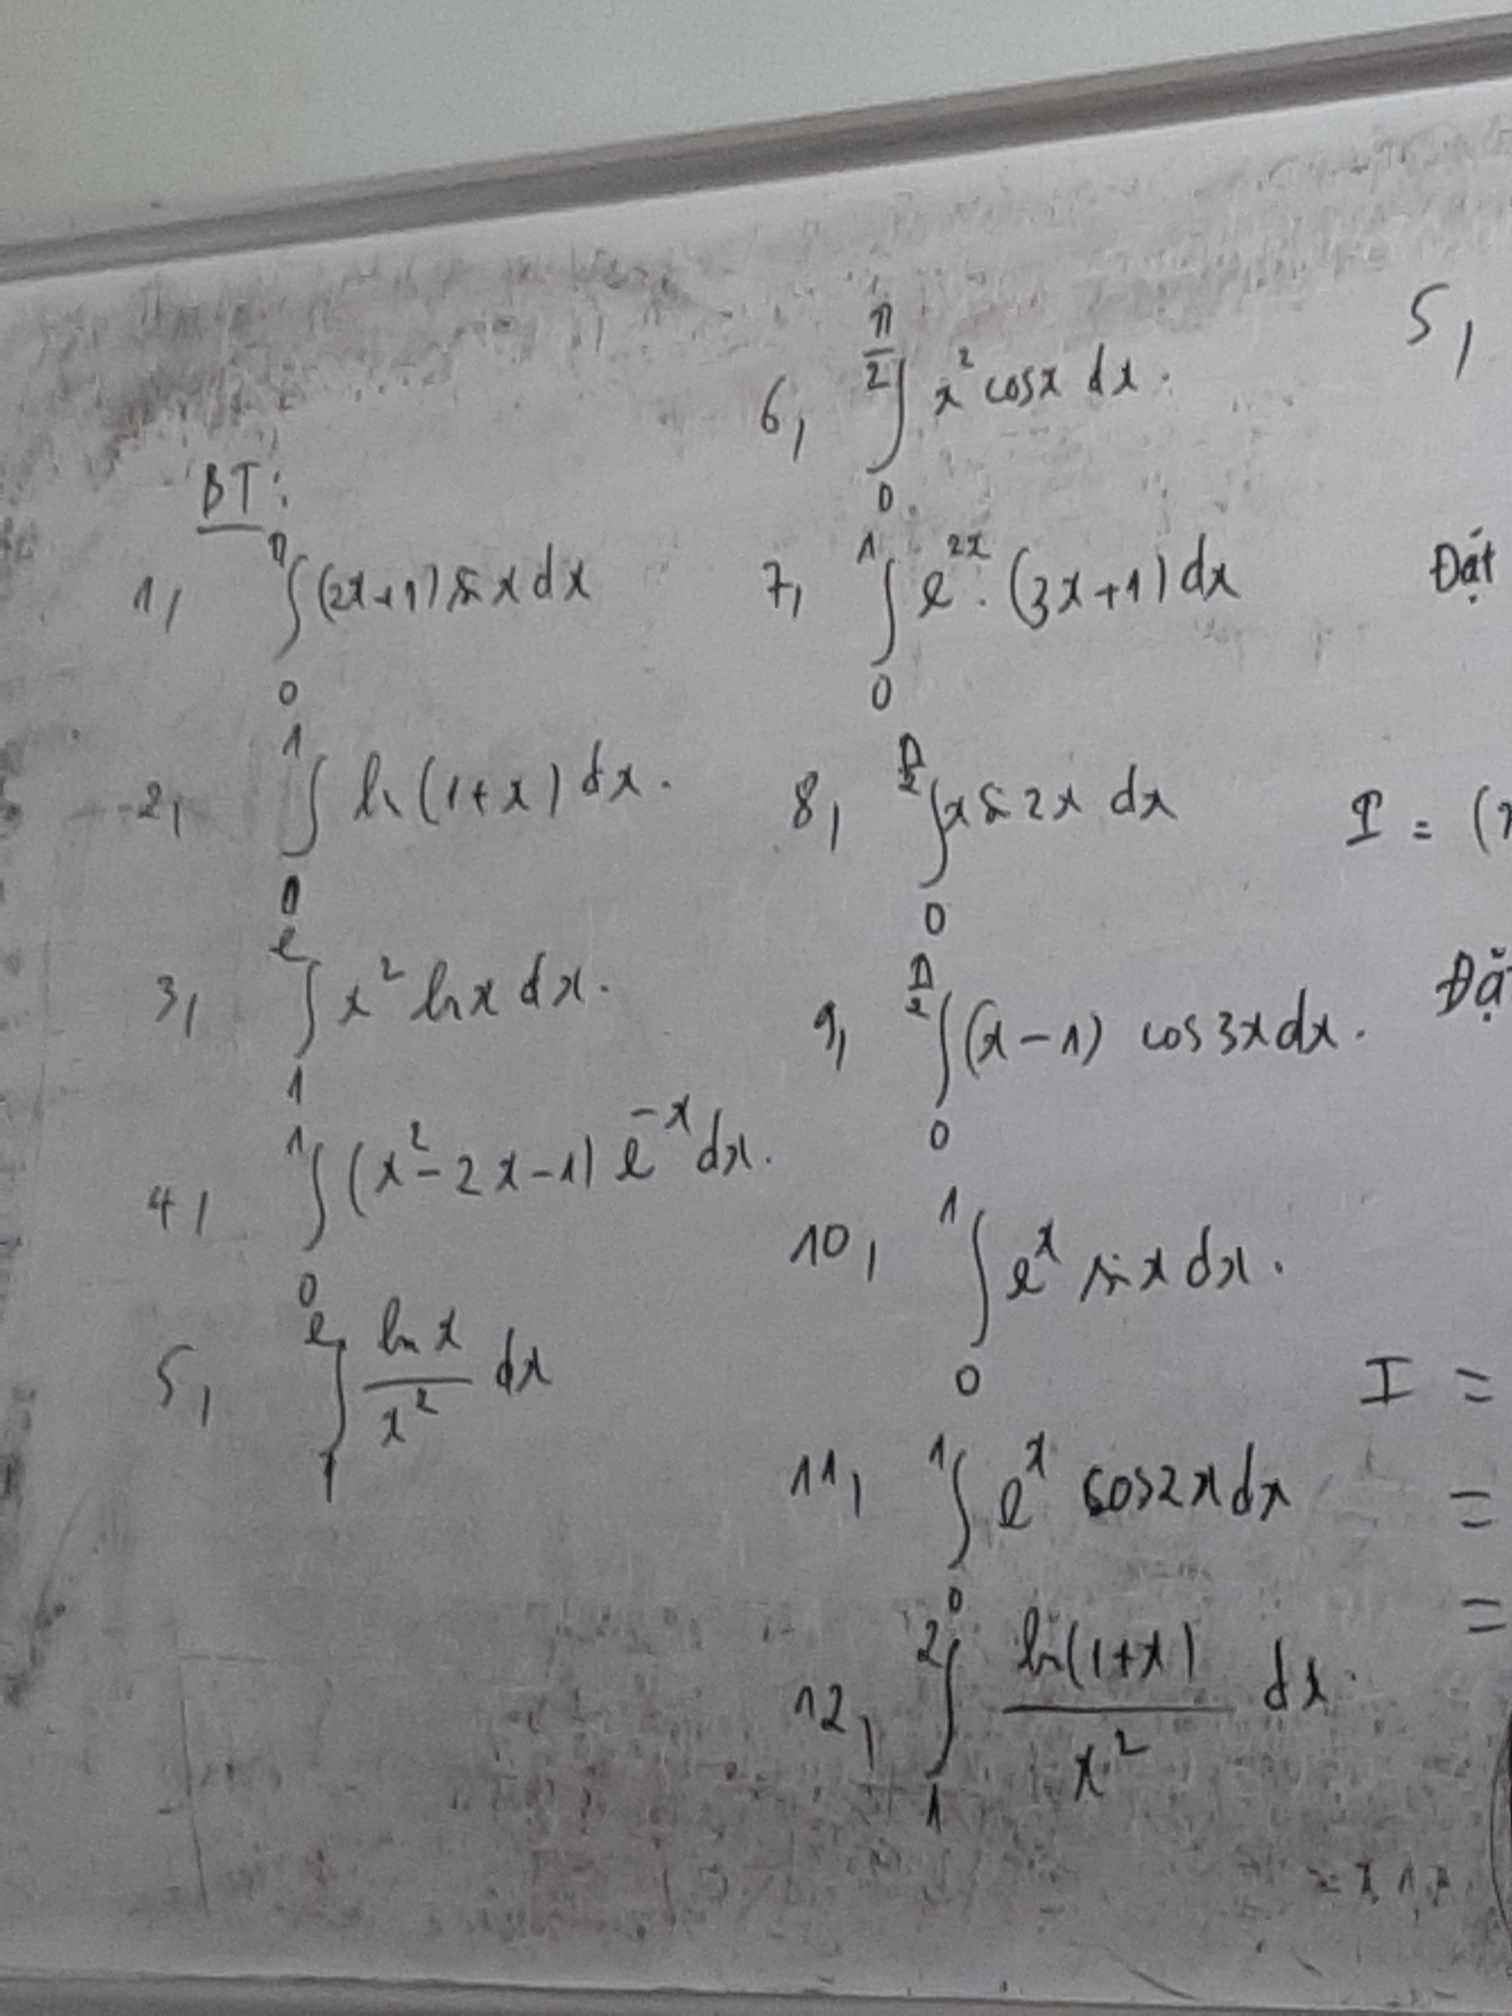 BT:
1, ∫₀^π (2x+1) sin x dx
2, ∫₀^1 ln(1+x) dx.
3, ∫₁^e x² ln x dx.
4, ∫₀^1 (x²-2x-1) e^{-x} dx.
5, ∫₁^e \frac{ln x}{x²} dx
6, ∫₀^{π/2} x² cos x dx.
7, ∫₀^1 e^{2x}. (3x+1) dx
8, ∫₀^{π/2} x sin 2x dx
9, ∫₀^{π/2} (x-1) cos 3x dx.
10, ∫₀^1 e^x sin x dx.
11, ∫₀^1 e^x cos 2x dx
12, ∫₁^2 \frac{ln(1+x)}{x²} dx.
5,
Đặt
I = (
I =
=
=